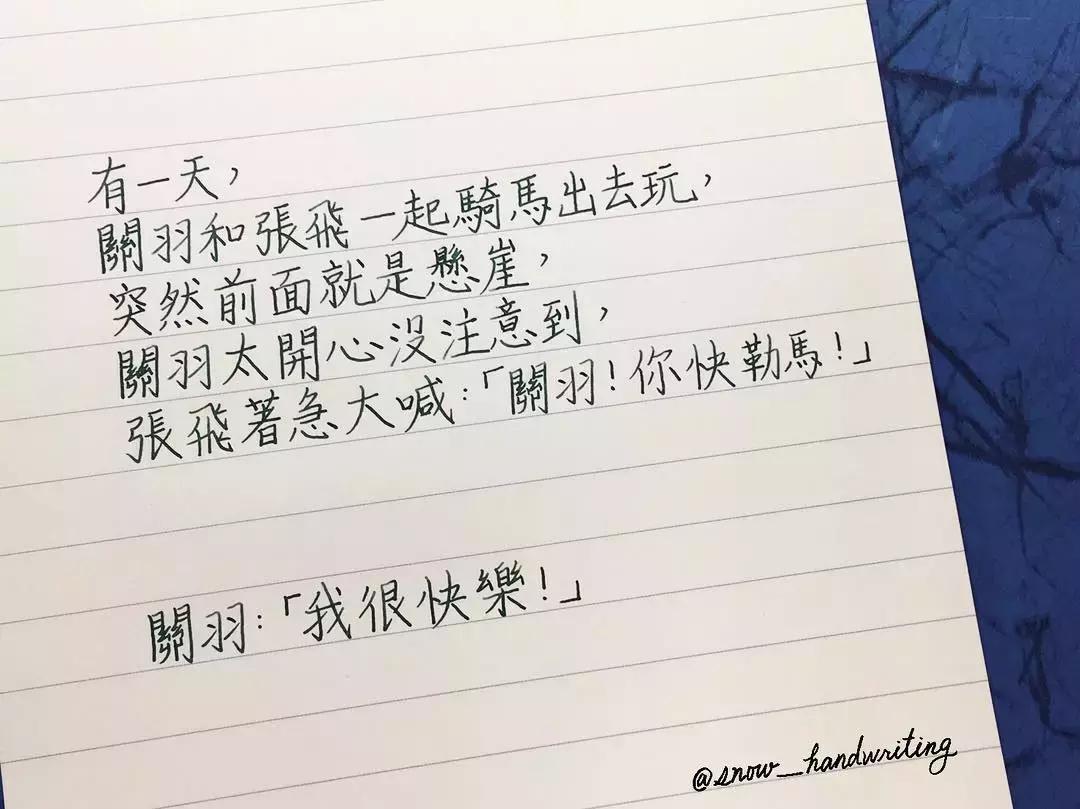 有一天，
關羽和張飛一起騎馬出去玩，
突然前面就是懸崖，
關羽太開心沒注意到，
張飛著急大喊：「關羽！你快勒馬！」
關羽：「我很快樂！」
@snow_handwriting